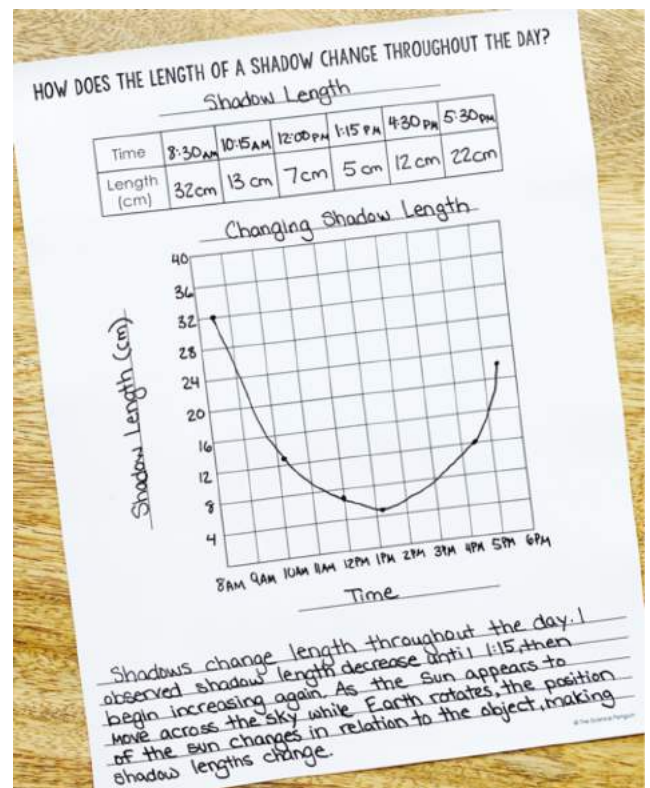 HOW DOES THE LENGTH OF A SHADOW CHANGE THROUGHOUT THE DAY?
Shadow Length
Time 8:30AM 10:15AM 12:00PM 1:15PM 4:30PM 5:30PM
Length (cm) 32cm 13 cm 7cm 5cm 12 cm 22cm
Changing Shadow Length
40
36
32
28
24
20
16
12
8
4
Shadow Length (cm)
8AM 9AM 10AM 11AM 12PM 1PM 2PM 3PM 4PM 5PM 6PM
Time
Shadows change length throughout the day. I
observed shadow length decrease until 1:15, then
begin increasing again. As the sun appears to
move across the sky while Earth rotates, the position
of the sun changes in relation to the object, making
shadow lengths change.
© The Science Penguin